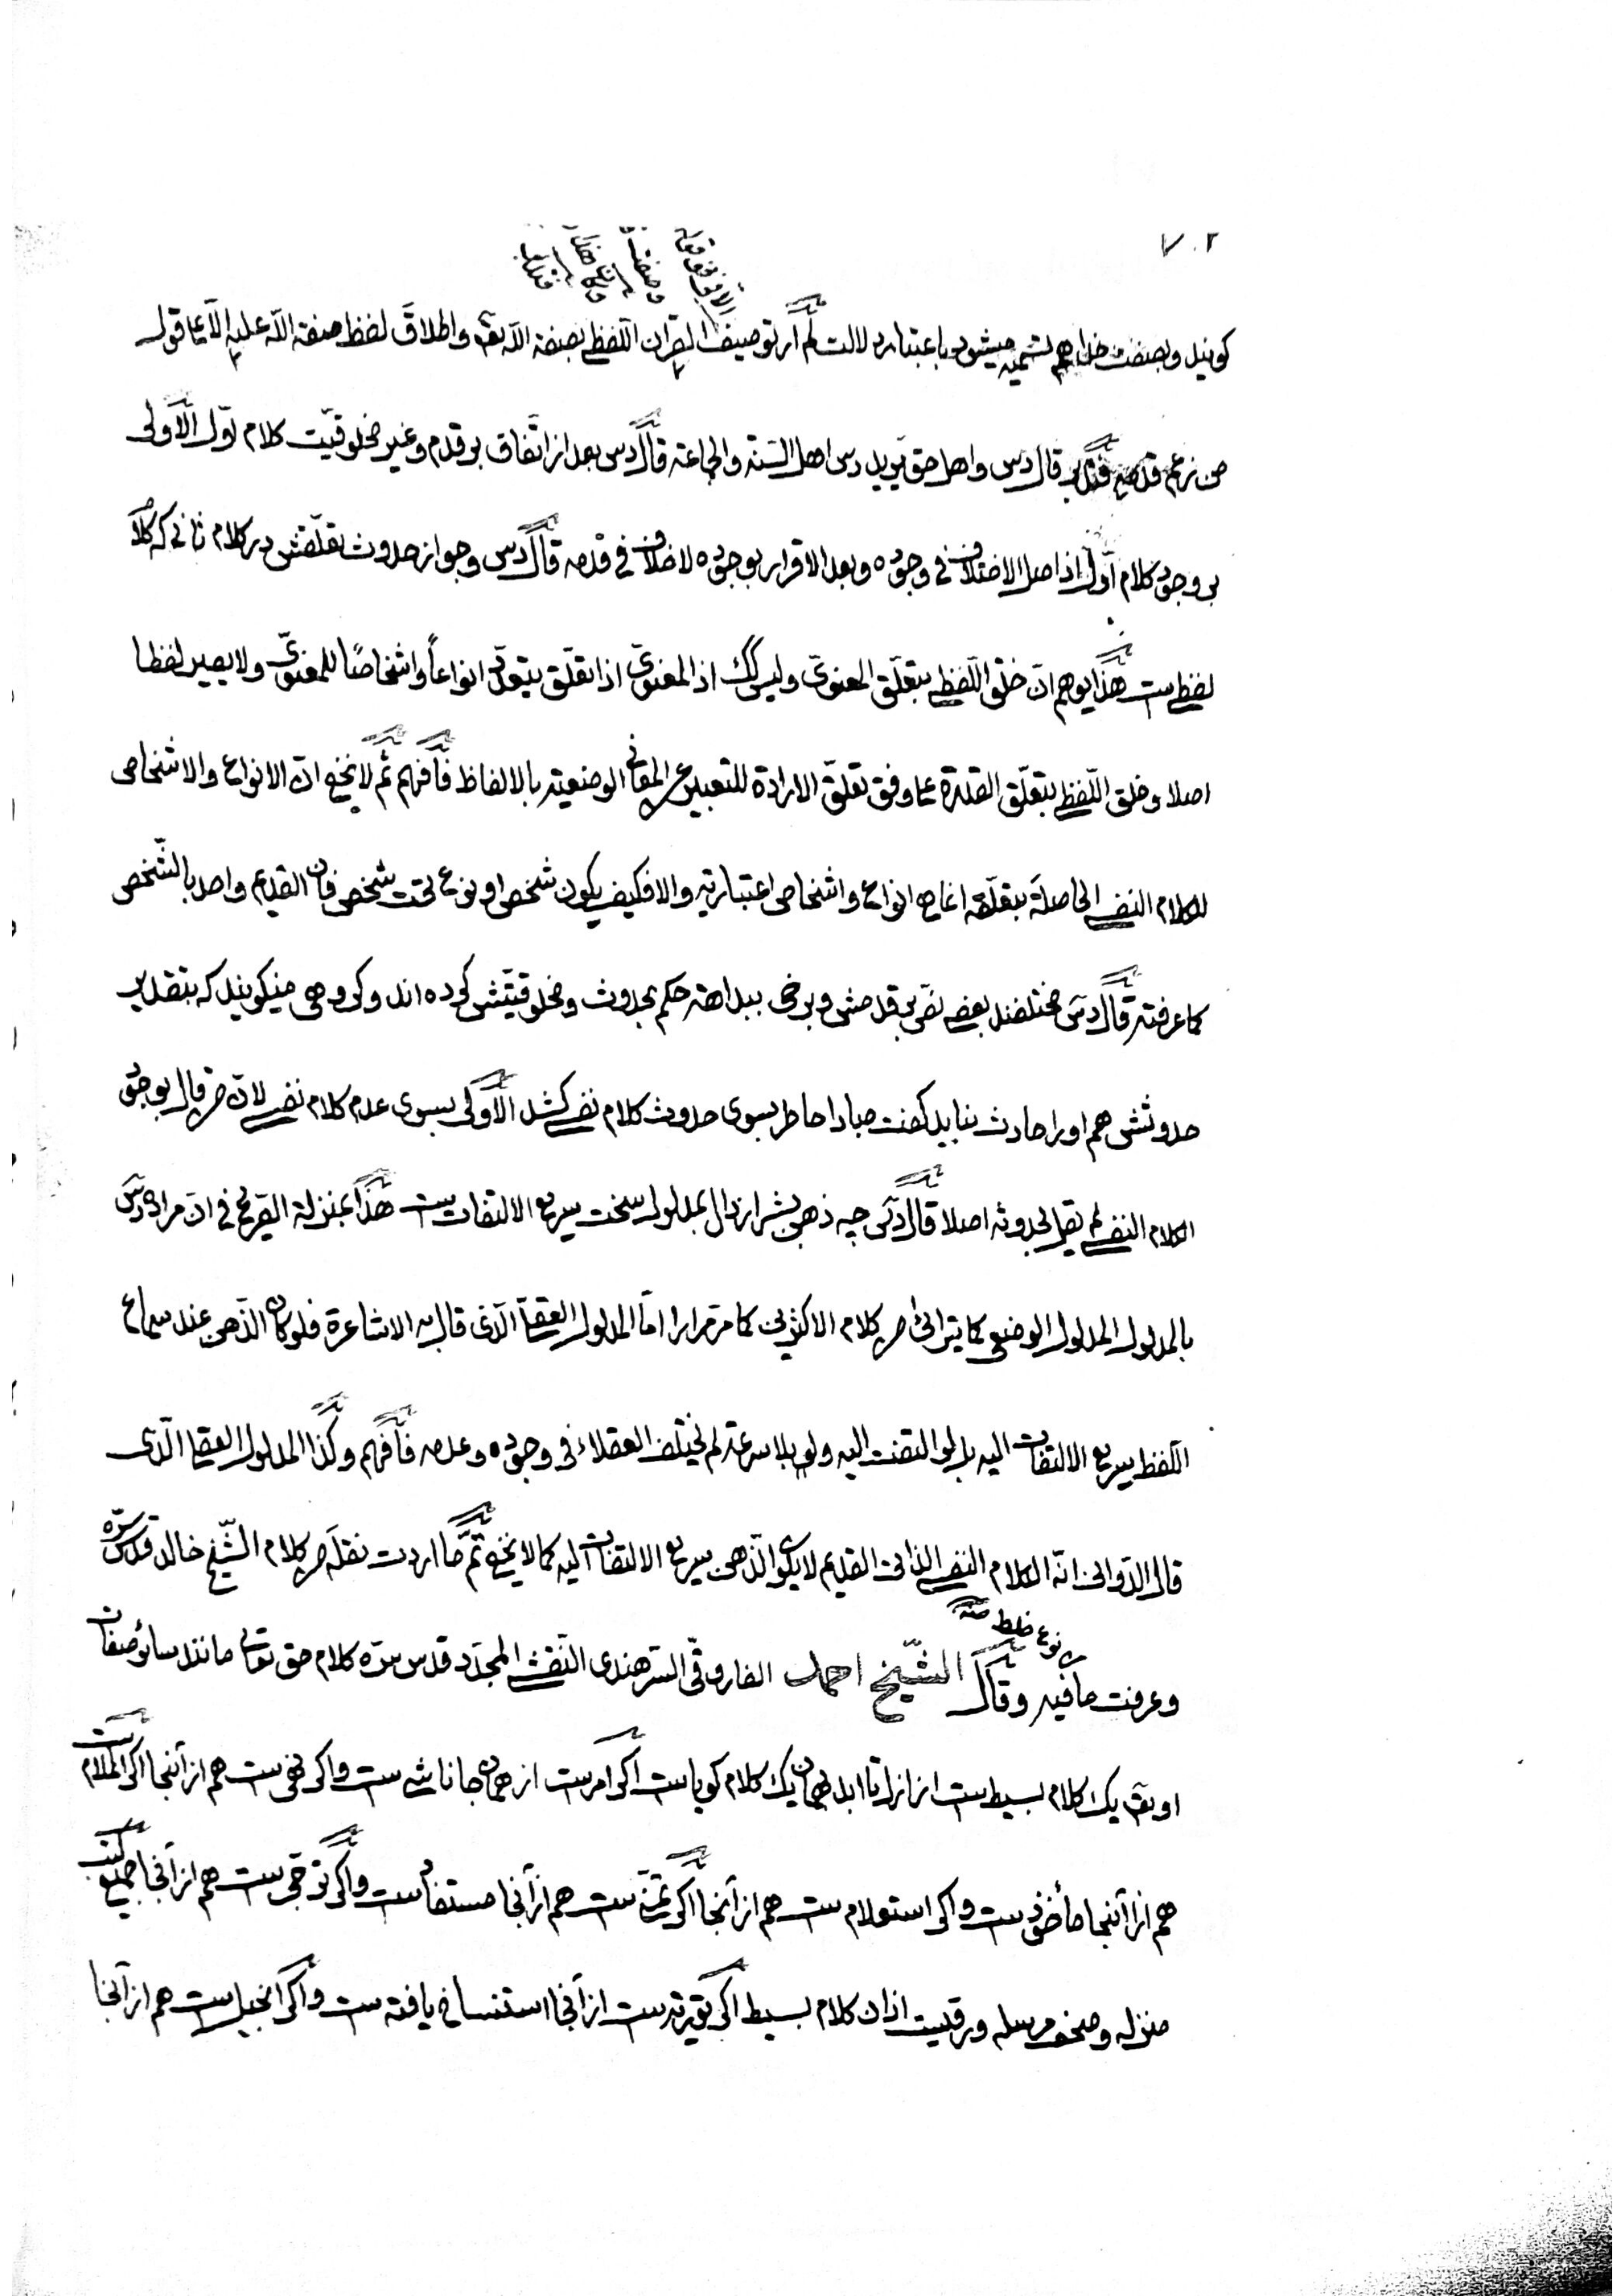 ٧٠٢
كويند وبصفت خدا هم تسميه ميشود باعتبار دلالت لم أر توصيف القرآن اللفظي بصفة الله تع واطلاق لفظ صفة الله عليه الا على قول
من زعم قدمه فتدبر قال دس واهل حق يريد دس اهل السنة والجماعة قال دس بعد از اتفاق بر قدم وغير مخلوقيت كلام اول الاولى
بر وجود كلام اول اذ اصل الاختلاف في وجوده وبعد الاقرار بوجوده لا خلاف في قدمه قال دس وجواز حدوث تعلقش در كلام ثاني كه كلام
لفظي ست هذا يوهم ان خلق اللفظي بتعلق المعنوي وليس كك اذ المعنوي اذا تعلق يتعدد انواعاً واشخاصًا للمعنوي ولا يصير لفظا
اصلا وخلق اللفظي بتعلق القدرة على وفق تعلق الارادة للتعبير عن المعاني الوضعية بالالفاظ فافهم ثم لا يخفى ان الانواع والاشخاص
للكلام النفسي الحاصلة بتعلقه انما هي انواع واشخاص اعتبارية والا فكيف يكون شخص او نوع تحت شخص فان القديم واحد بالشخص
كما عرفته قال دس مختلفند بعضي نص بر قدمش وبرخى ببداهة حكم بحدوث ومخلوقيتش كرده اند وكروهى ميكويند كه بتقدير
حدوثش هم اورا حادث نبايد كفت مبادا خاطر بسوى حدوث كلام نفسي كشد الاولى بسوى عدم كلام نفسي لان من قال بوجود
الكلام النفسي لم يقل بحدوثه اصلا قال دس چه ذهن بشر از دال بمدلول سخت سريع الالتفات ست هذا بمنزلة التصريح في ان مراده دس
بالمدلول المدلول الوضعي كما يترائى من كلام الاكثرين كما مر مرارا اما المدلول العقلي الذي قال به الاشاعرة فلو كان الذهن عند سماع
اللفظ سريع الالتفات اليه بل لو التفت اليه ولو بلا سرعة لم يختلف العقلاء في وجوده وعدمه فافهم وكذا المدلول العقلي الذي
قال الدواني انه الكلام النفسي الذاتي القديم لا يكون الذهن سريع الالتفات اليه كما لا يخفى تم ما اردت نقله من كلام الشيخ خالد قدس سره
وعرفت ما فيه وقال الشيخ احمد الفاروقي السرهندي النقشي المجدد قدس سره كلام حق تعالى مانند سائر صفات
بنوع خلط منه
او تع يك كلام بسيط ست از ازل تا ابد بهمان يك كلام كوياست اكر امرست از همان جا ناشي ست واكر نهى ست هم از آنجا اكر اعلام ست
هم از آنجا مأخوذ ست واكر استعلام ست هم از آنجا اكر تمنى ست هم از آنجا مستفاد ست واكر ترجى ست هم از آنجا جميع كتب
منزله وصحف مرسله ورقيست از ان كلام بسيط اكر توريت ست از آنجا استنساخ يافته ست واكر انجيل ست هم از آنجا